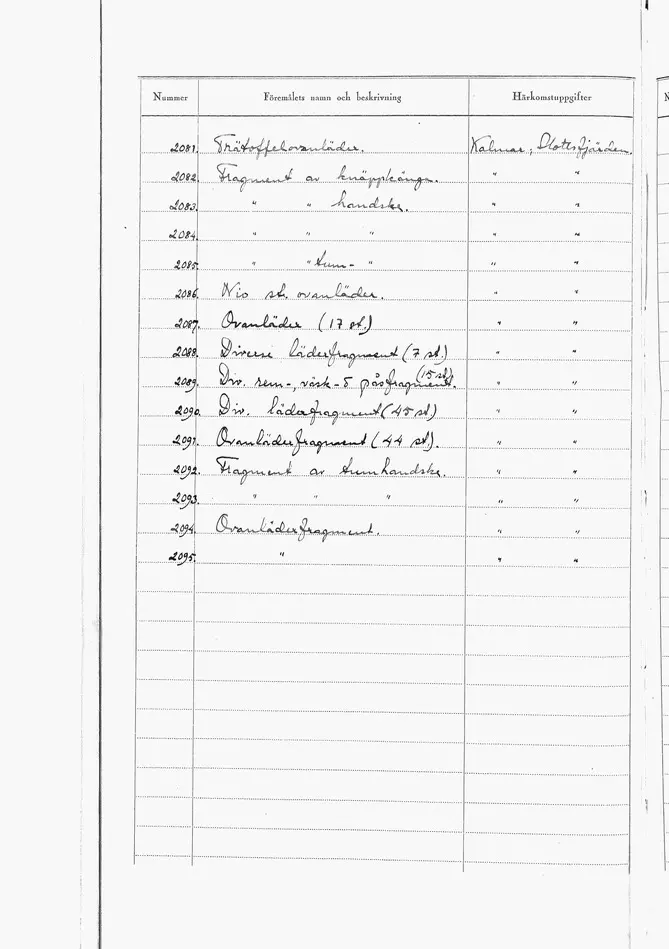 Nummer Föremålets namn och beskrivning Härkomstuppgifter
2081. Trätoffelovanläder. Kalmar, Slottsfjärden.
2082. Fragment av knäppkänga. " "
2083. " " handske. " "
2084. " " " " "
2085. " " tum- " " "
2086. Nio st. ovanläder. " "
2087. Ovanläder (17 st.) " "
2088. Diverse läderfragment (7 st.) " "
2089. Div. rem-, väsk- & påsfragment. (15 st.) " "
2090. Div. läderfragment (45 st) " "
2091. Ovanläderfragment (44 st). " "
2092. Fragment av tumhandske. " "
2093. " " " " "
2094. Ovanläderfragment. " "
2095. " " "